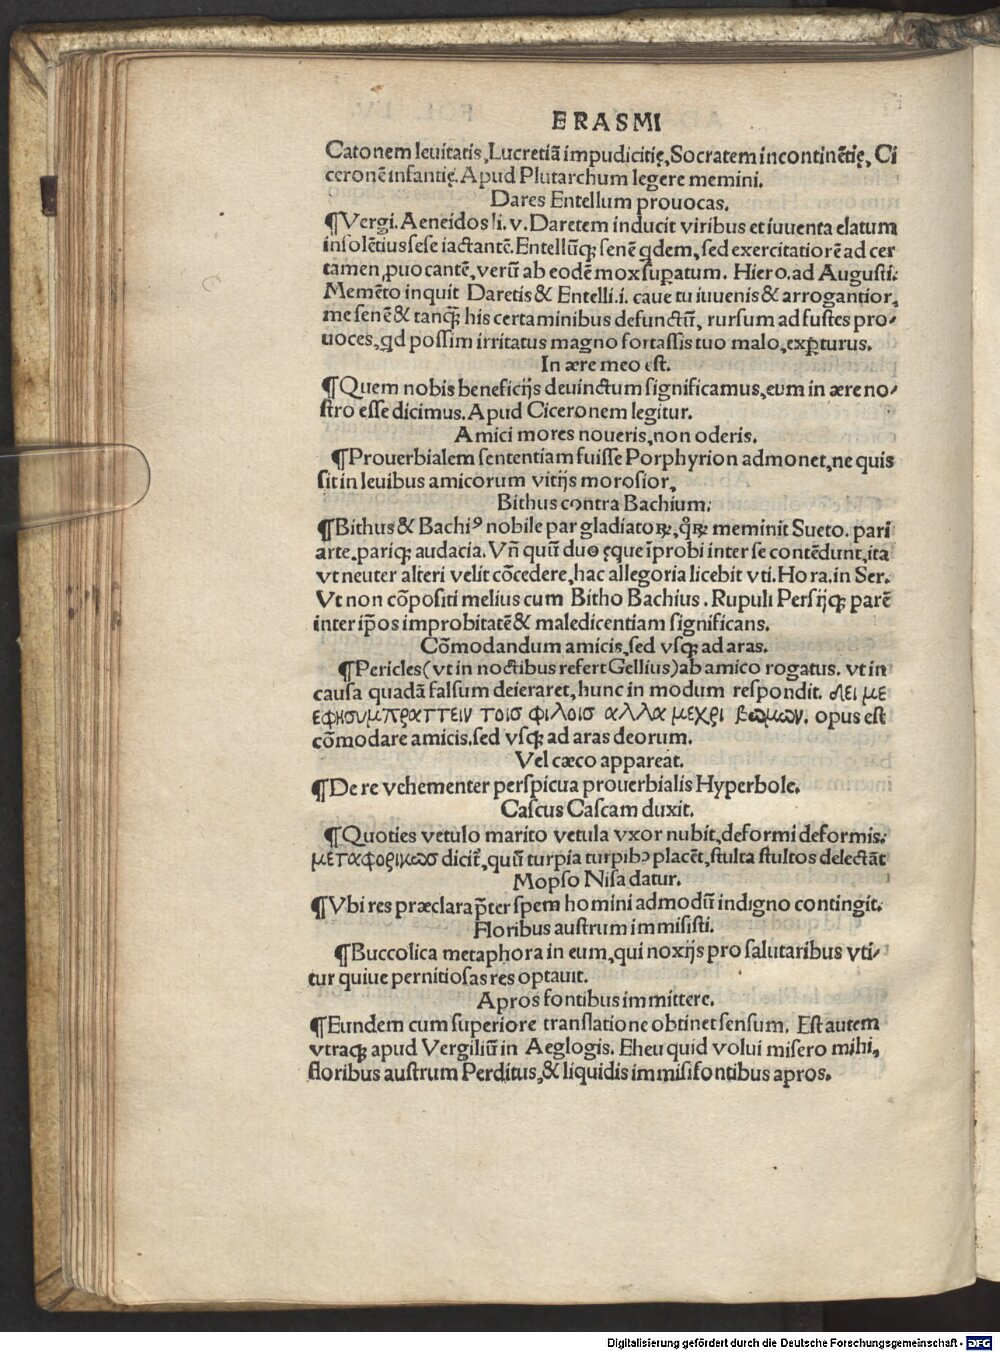 ERASMI
Catonem leuitatis, Lucretiã impudicitię, Socratem incontinẽtię, Ci
ceronẽ infantię. Apud Plutarchum legere memini.
Dares Entellum prouocas.
¶Vergi. Aeneidos li. v. Daretem inducit viribus et iuuenta elatum
insolẽtius sese iactantẽ. Entellũqꝫ senẽ qdem, sed exercitatiorẽ ad cer
tamen, puocantẽ, verũ ab eodẽ mox supatum. Hiero. ad Augusti:
Memẽto inquit Daretis & Entelli. i. caue tu iuuenis & arrogantior,
me senẽ & tanqꝫ his certaminibus defunctũ, rursum ad fustes pro-
uoces, qd possim irritatus magno fortassis tuo malo, expturus.
In ære meo est.
¶Quem nobis beneficijs deuinctum significamus, eum in ære no-
stro esse dicimus. Apud Ciceronem legitur.
Amici mores noueris, non oderis.
¶Prouerbialem sententiam fuisse Porphyrion admonet, ne quis
sit in leuibus amicorum vitijs morosior,
Bithus contra Bachium.
¶Bithus & Bachiꝰ nobile par gladiatoꝝ, qꝝ meminit Sueto. pari
arte. pariqꝫ audacia. Vñ quũ duo ęque ĩprobi inter se contẽdunt, ita
vt neuter alteri velit cõcedere, hac allegoria licebit vti. Hora. in Ser.
Vt non cõpositi melius cum Bitho Bachius. Rupuli Persijqꝫ parẽ
inter ip̃os improbitatẽ & maledicentiam significans.
Cõmodandum amicis, sed vsqꝫ ad aras.
¶Pericles (vt in noctibus refert Gellius) ab amico rogatus. vt in
causa quadã falsum deieraret, hunc in modum respondit. λει με
εφησυμπραττειν τοισ φιλοισ αλλα μεχρι βωμων. opus est
cõmodare amicis, sed vsqꝫ ad aras deorum.
Vel cæco appareat.
¶De re vehementer perspicua prouerbialis Hyperbole.
Cascus Cascam duxit.
¶Quoties vetulo marito vetula vxor nubit, deformi deformis:
μεταφορικωσ dicit, quũ turpia turpibꝫ placẽt, stulta stultos delectãt
Mopso Nisa datur.
¶Vbi res præclara p̃ter spem homini admodũ indigno contingit.
Floribus austrum immisisti.
¶Buccolica metaphora in eum, qui noxijs pro salutaribus vti-
tur quiue pernitiosas res optauit.
Apros fontibus immittere.
¶Eundem cum superiore translatione obtinet sensum. Est autem
vtraqꝫ apud Vergiliũ in Aeglogis. Eheu quid volui misero mihi,
floribus austrum Perditus, & liquidis immisi fontibus apros.
Digitalisierung gefördert durch die Deutsche Forschungsgemeinschaft - DFG